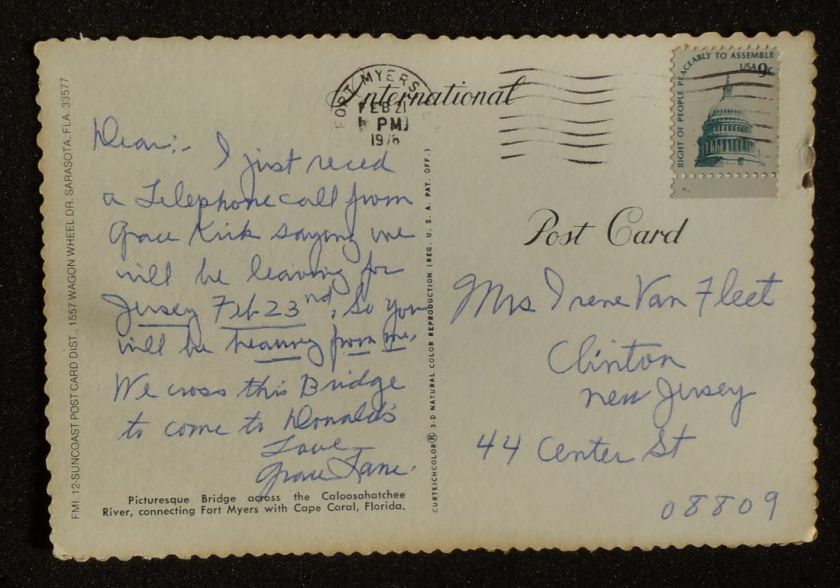 FORT MYERS
FEB 21
PM
1978
International
RIGHT OF PEOPLE PEACEABLY TO ASSEMBLE
USA 9c
Post Card
Dear:-
I just reced
a Telephone call from
Grace Kirk saying we
will be leaving for
Jersey Feb 23nd, So you
will be hearing from me.
We cross this Bridge
to come to Donalds
Love
Grace Lane.
Picturesque Bridge across the Caloosahatchee
River, connecting Fort Myers with Cape Coral, Florida.
FMI. 12-SUNCOAST POST CARD DIST., 1557 WAGON WHEEL DR. SARASOTA, FLA. 33577
CURTEICHCOLOR® 3-D NATURAL COLOR REPRODUCTION (REG. U. S. A. PAT. OFF.)
Mrs Irene Van Fleet
Clinton
New Jersey
44 Center St
08809